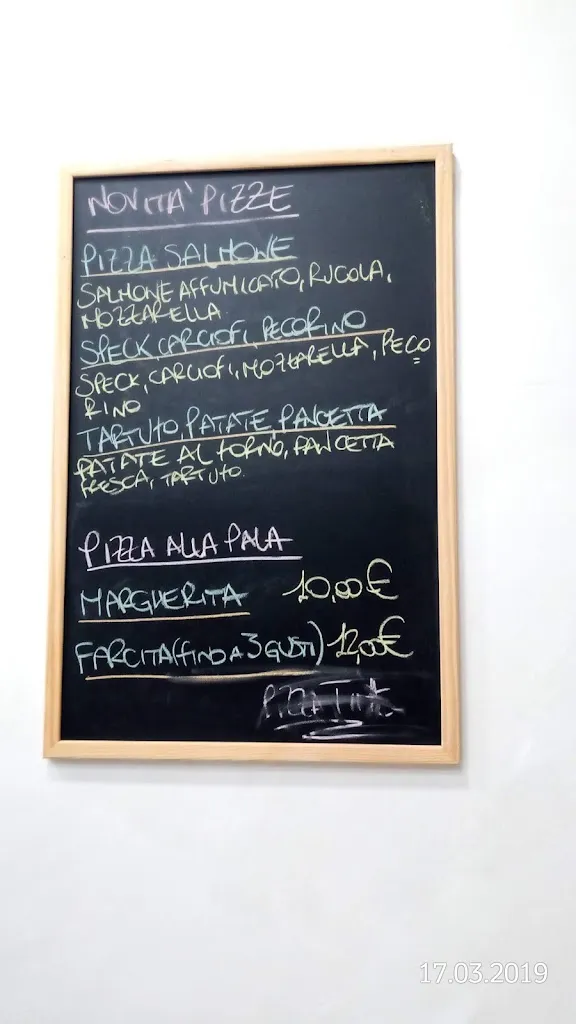 NOVITA' PIZZE
PIZZA SALMONE
SALMONE AFFUMICATO, RUCOLA,
MOZZARELLA
SPECK, CARCIOFI, PECORINO
SPECK, CARCIOFI, MOZZARELLA, PECO
RINO
TARTUFO, PATATE, PANCETTA
PATATE AL FORNO, PANCETTA
FRESCA, TARTUFO.
PIZZA ALLA PALA
MARGHERITA 10,00€
FARCITA (FINO A 3 GUSTI) 12,00€
PIZZA
17.03.2019